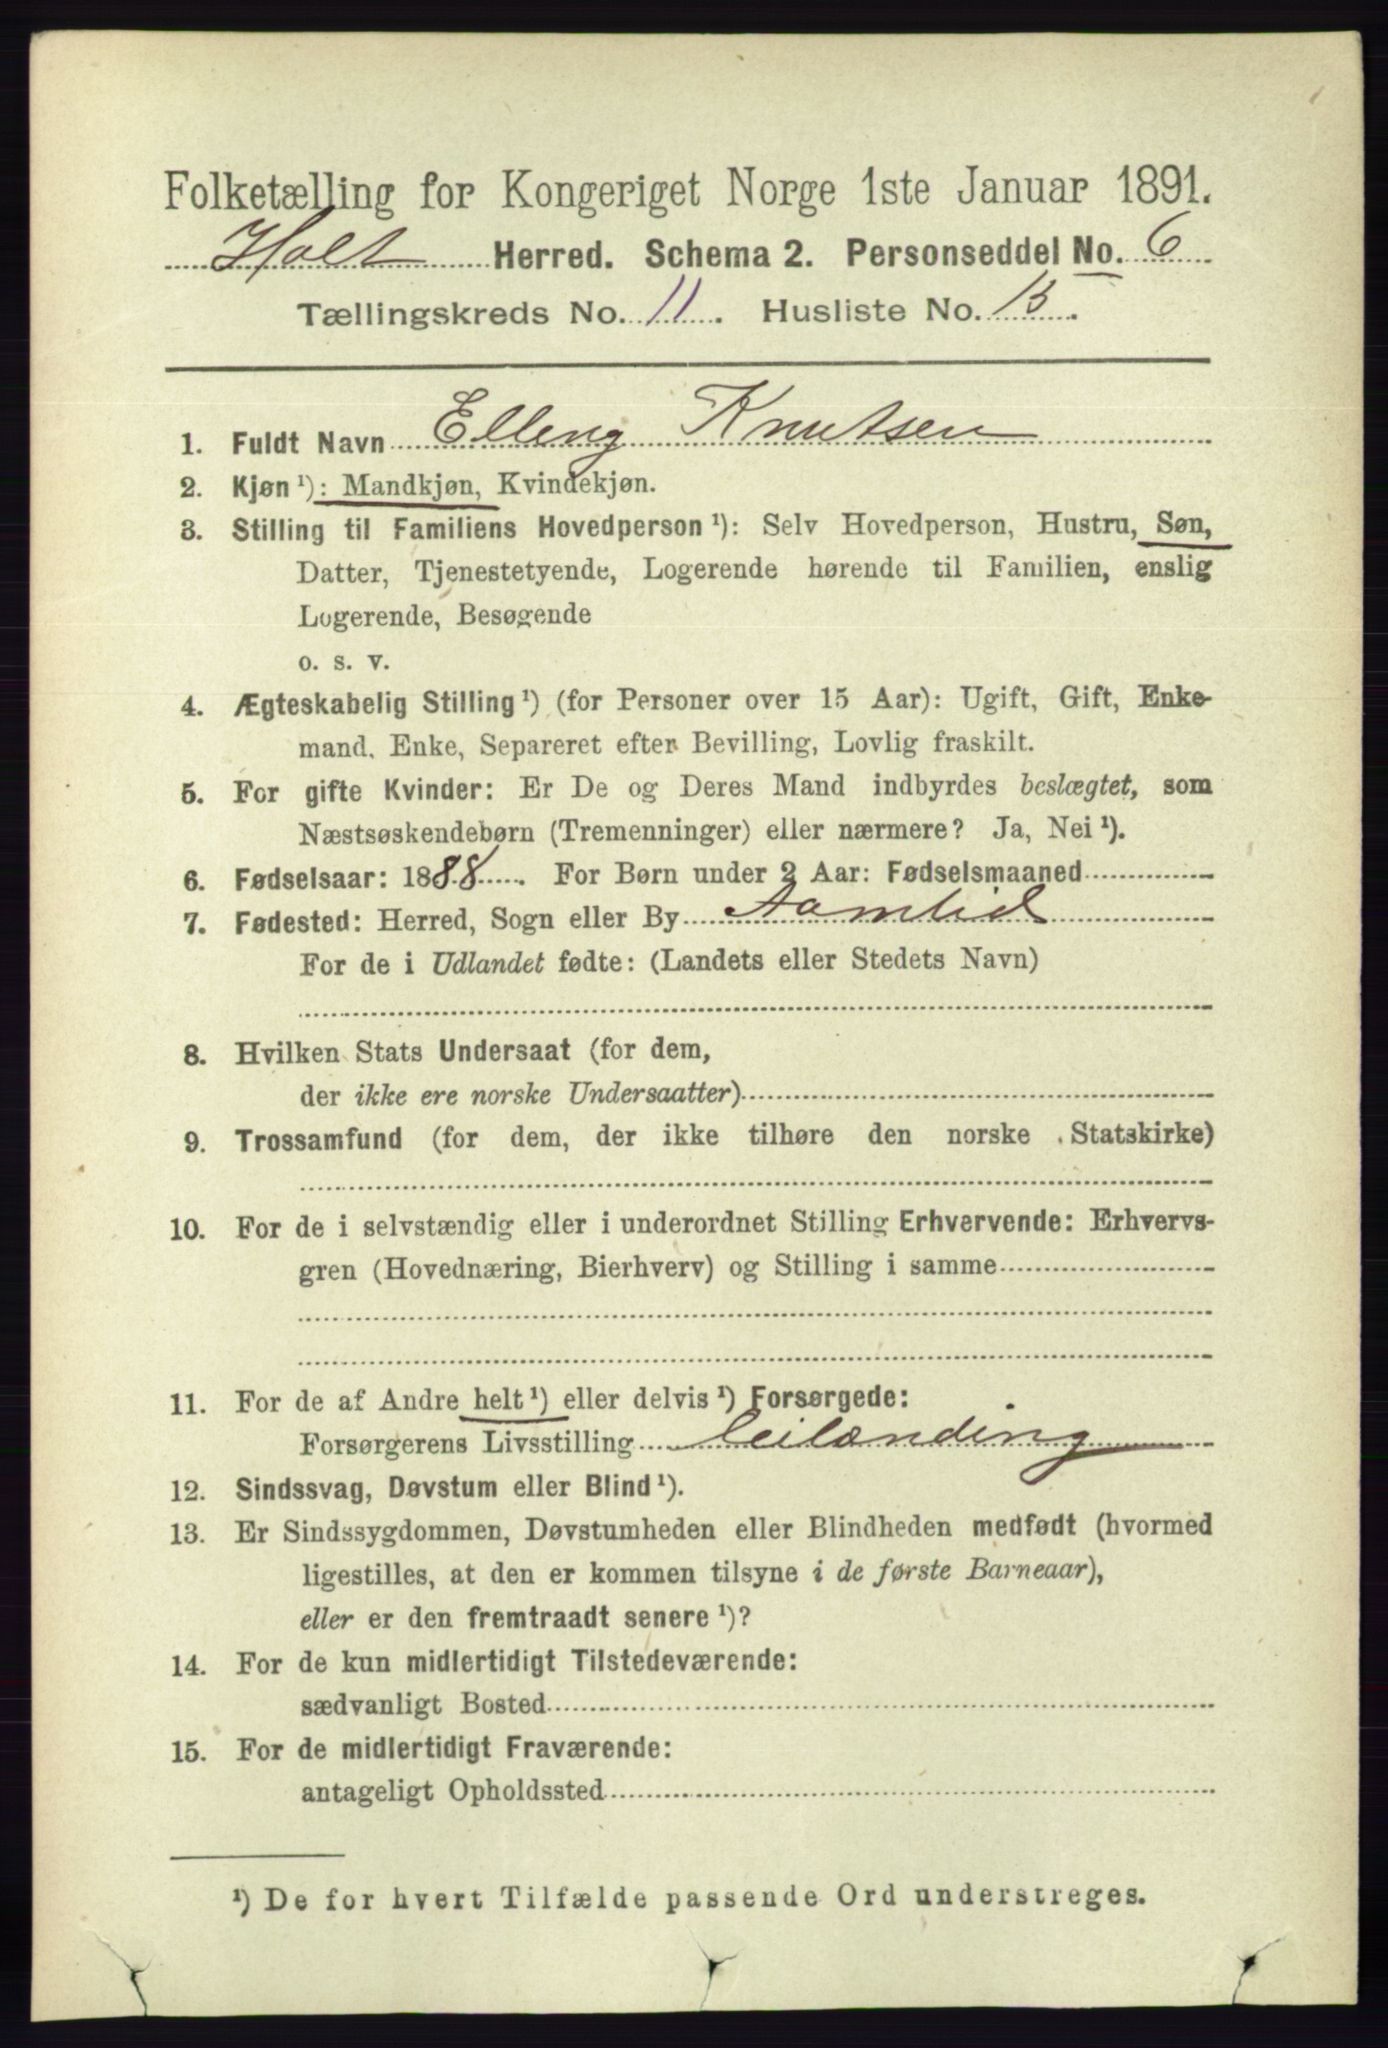 Folketælling for Kongeriget Norge 1ste Januar 1891.
Holt Herred. Schema 2. Personseddel No. 6
Tællingskreds No. 11. Husliste No. 13.
1. Fuldt Navn Elleng Knutsen
2. Kjøn ¹): Mandkjøn, Kvindekjøn.
3. Stilling til Familiens Hovedperson ¹): Selv Hovedperson, Hustru, Søn,
Datter, Tjenestetyende, Logerende hørende til Familien, enslig
Logerende, Besøgende
o. s. v.
4. Ægteskabelig Stilling ¹) (for Personer over 15 Aar): Ugift, Gift, Enke-
mand, Enke, Separeret efter Bevilling, Lovlig fraskilt.
5. For gifte Kvinder: Er De og Deres Mand indbyrdes beslægtet, som
Næstsøskendebørn (Tremenninger) eller nærmere? Ja, Nei ¹).
6. Fødselsaar: 1888. For Børn under 2 Aar: Fødselsmaaned
7. Fødested: Herred, Sogn eller By Aamlid
For de i Udlandet fødte: (Landets eller Stedets Navn)
8. Hvilken Stats Undersaat (for dem,
der ikke ere norske Undersaatter)
9. Trossamfund (for dem, der ikke tilhøre den norske Statskirke)
10. For de i selvstændig eller i underordnet Stilling Erhvervende: Erhvervs-
gren (Hovednæring, Bierhverv) og Stilling i samme
11. For de af Andre helt ¹) eller delvis ¹) Forsørgede:
Forsørgerens Livsstilling Leilænding
12. Sindssvag, Døvstum eller Blind ¹).
13. Er Sindssygdommen, Døvstumheden eller Blindheden medfødt (hvormed
ligestilles, at den er kommen tilsyne i de første Barneaar),
eller er den fremtraadt senere ¹)?
14. For de kun midlertidigt Tilstedeværende:
sædvanligt Bosted
15. For de midlertidigt Fraværende:
antageligt Opholdssted
¹) De for hvert Tilfælde passende Ord understreges.